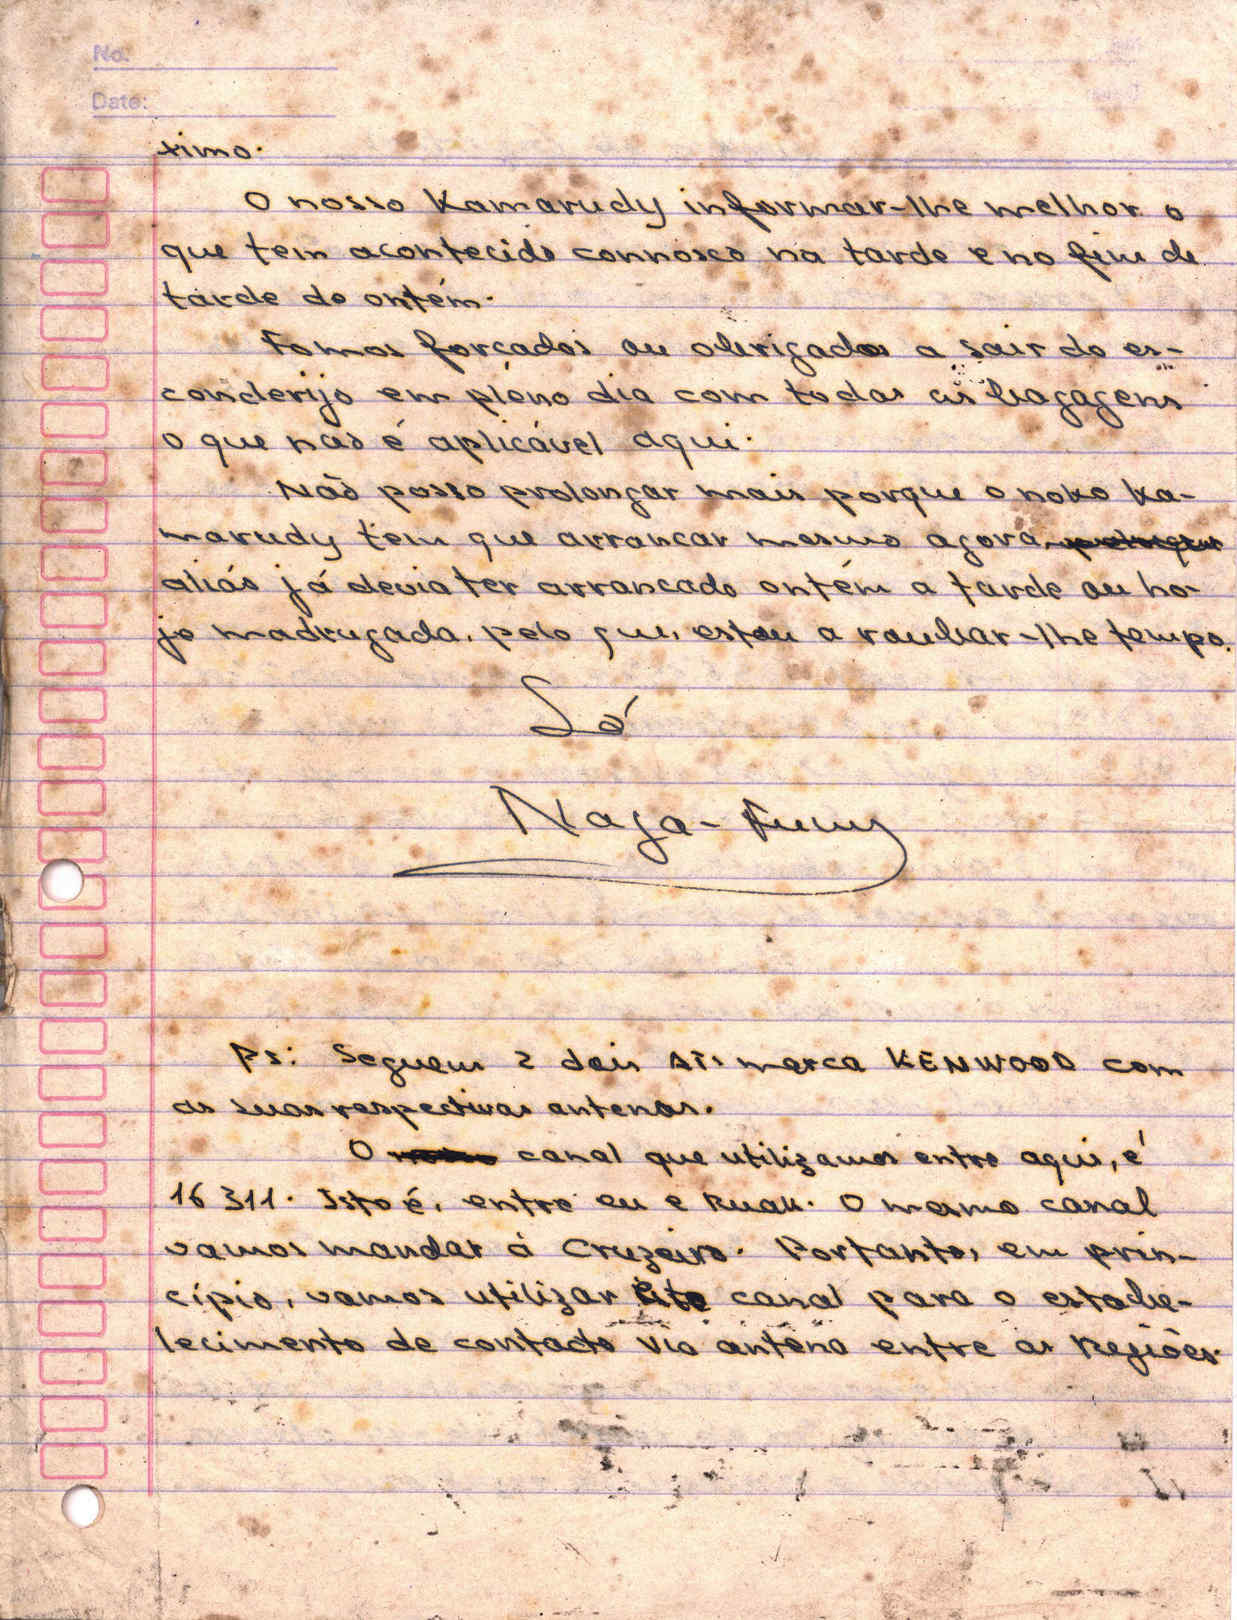 No.
Date:
ximo.
O nosso Kamarudy informar-lhe melhor o
que tem acontecido connosco na tarde e no fim de
tarde de ontém.
Fomos forçados ou obrigados a sair do es-
conderijo em pleno dia com todas as bagagens
o que não é aplicável aqui.
Não posso prolongar mais porque o nosso Ka-
marudy tem que arrancar mesmo agora
aliás já devia ter arrancado ontém a tarde ou ho-
je madrugada, pelo que, estou a roubar-lhe tempo.
Só
Naga-
Ps: Seguem 2 dois ATs marca KENWOOD com
as suas respectivas antenas.
O canal que utilizamos entre aqui, é
16311. Isto é, entre eu e Ruak. O mesmo canal
vamos mandar à Cruzeiro. Portanto, em prin-
cípio, vamos utilizar este canal para o estabe-
lecimento de contacto via antena entre as Regiões.